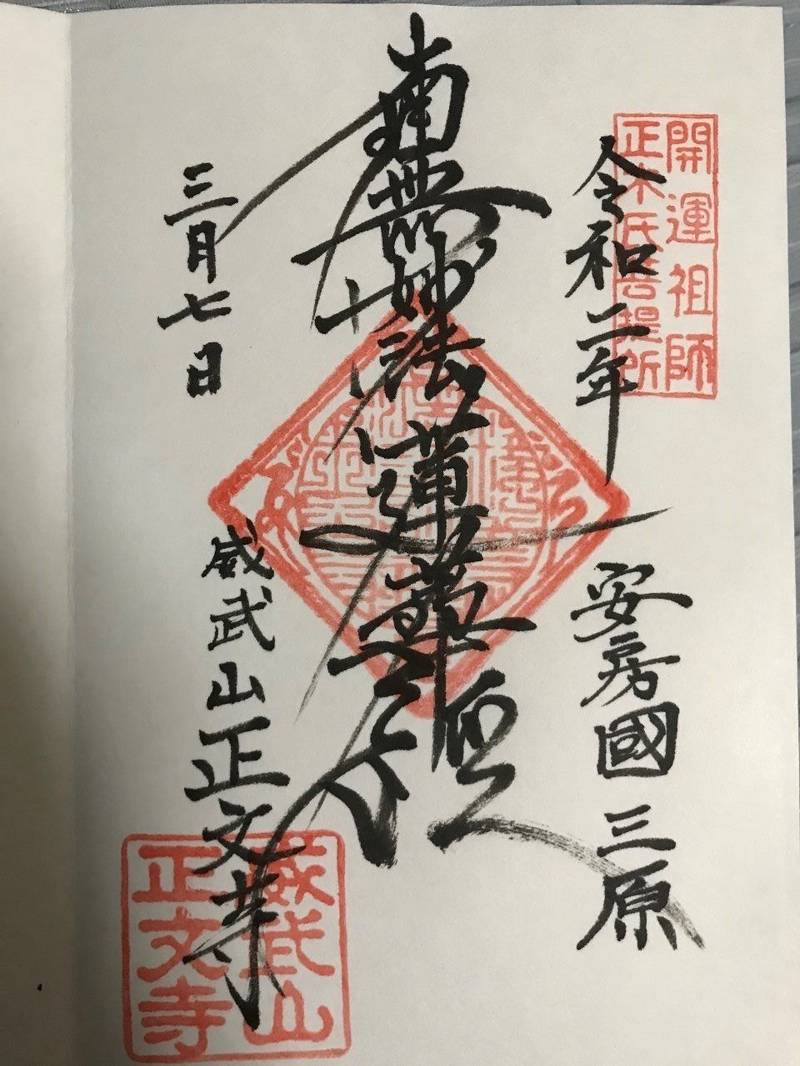 開運祖師
正木氏菩提所
令和二年
安房國三原
南無妙法蓮華経
三月七日
威武山正文寺
威武山
正文寺